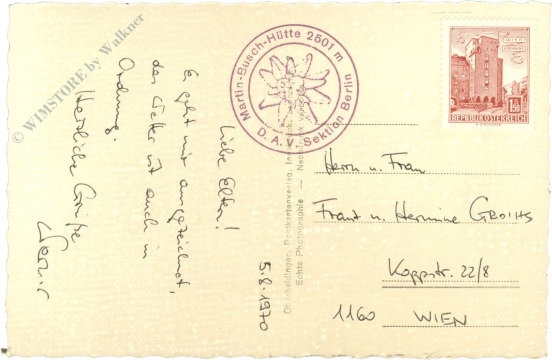 © WIMSTORE by Walkner
5.8.1970
Liebe Eltern!
Es geht mir ausgezeichnet,
das Wetter ist auch in
Ordnung.
Herzliche Grüße
Werner
Martin-Busch-Hütte 2501 m
D. A. V. Sektion Berlin
Echte Photographie —
1.50
REPUBLIK ÖSTERREICH
Herrn u. Frau
Franz u. Hermine GROIHS
Koppstr. 22/8
1160 WIEN